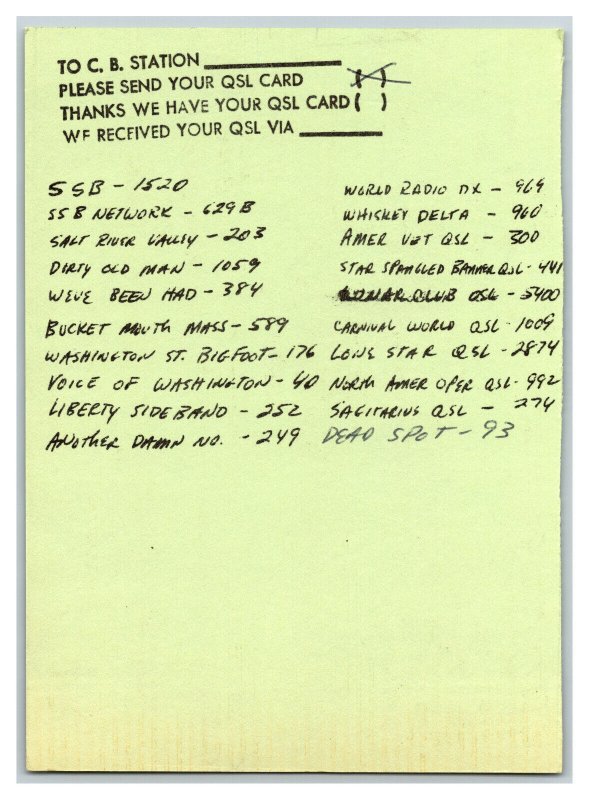 TO C. B. STATION
PLEASE SEND YOUR QSL CARD (X)
THANKS WE HAVE YOUR QSL CARD ( )
WE RECEIVED YOUR QSL VIA
SSB - 1520
SSB NETWORK - 629B
SALT RIVER VALLEY - 203
DIRTY OLD MAN - 1059
WEVE BEEN HAD - 384
BUCKET MOUTH MASS - 589
WASHINGTON ST. BIGFOOT - 176
VOICE OF WASHINGTON - 40
LIBERTY SIDEBAND - 252
ANOTHER DAMN NO. - 249
WORLD RADIO DX - 969
WHISKEY DELTA - 960
AMER VET QSL - 300
STAR SPANGLED BANNER QSL - 441
CLUB QSL - 5400
CARNIVAL WORLD QSL - 1009
LONE STAR QSL - 2874
NORTH AMER OPER QSL - 992
SAGITARIUS QSL - 274
DEAD SPOT - 93